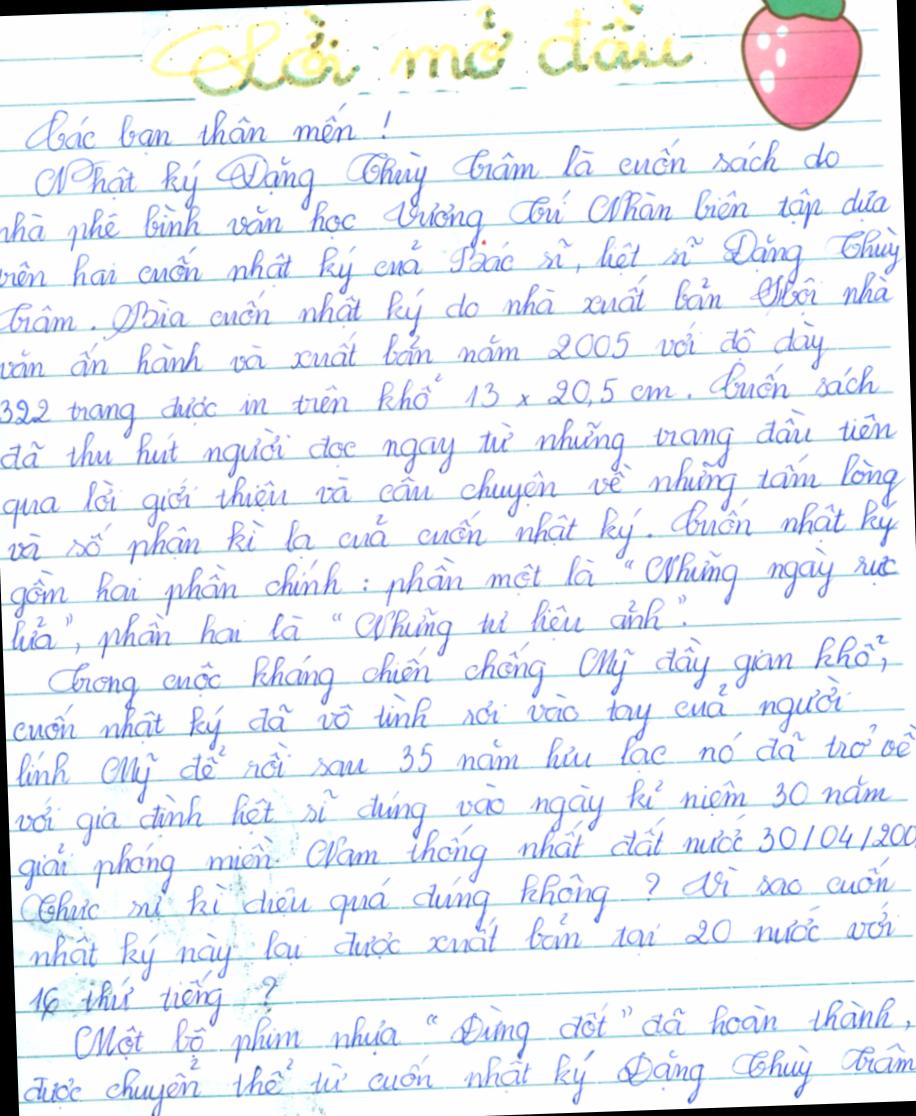 Lời mở đầu
Các bạn thân mến !
Nhật ký Đặng Thùy Trâm là cuốn sách do
nhà phê bình văn học Vương Trí Nhàn biên tập dựa
trên hai cuốn nhật ký của Bác sĩ, liệt sĩ Đặng Thùy
Trâm. Bìa cuốn nhật ký do nhà xuất bản Hội nhà
văn ấn hành và xuất bản năm 2005 với độ dày
322 trang được in trên khổ 13 x 20,5 cm. Cuốn sách
đã thu hút người đọc ngay từ những trang đầu tiên
qua lời giới thiệu và câu chuyện về những tấm lòng
và số phận kì lạ của cuốn nhật ký. Cuốn nhật ký
gồm hai phần chính : phần một là "Những ngày rực
lửa", phần hai là "Những tư liệu ảnh".
Trong cuộc kháng chiến chống Mỹ đầy gian khổ,
cuốn nhật ký đã vô tình rơi vào tay của người
lính Mỹ để rồi sau 35 năm lưu lạc nó đã trở về
với gia đình liệt sĩ đúng vào ngày kỉ niệm 30 năm
giải phóng miền Nam thống nhất đất nước 30/04/200
Thực sự kì diệu quá đúng không ? Vì sao cuốn
nhật ký này lại được xuất bản tại 20 nước với
16 thứ tiếng ?
Một bộ phim nhựa "Đừng đốt" đã hoàn thành,
được chuyển thể từ cuốn nhật ký Đặng Thùy Trâm